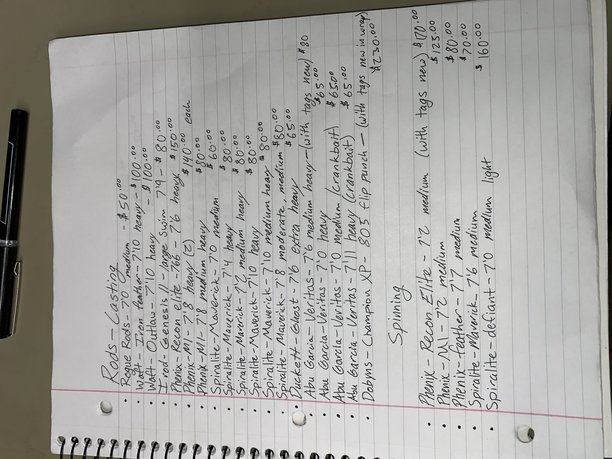 Rods - Casting
• Rogue Rods - 7'0 medium - $50.00
• Waft - Iron feather - 7'10 heavy - $100.00
• Waft - Outlaw - 7'10 heavy - $100.00
• Irod - Genesis II - large swim 7'9 - $80.00
• Phenix - Recon elite - 766 - 7'6 heavy $150.00
• Phenix - M1 - 7'8 heavy (2) $140.00 each
• Phenix - M1 - 7'8 medium heavy $80.00
• Spiralite - Maverick - 7'0 medium $60.00
• Spiralite - Maverick - 7'4 heavy $80.00
• Spiralite - Maverick - 7'2 medium heavy $80.00
• Spiralite - Maverick - 7'10 heavy $80.00
• Spiralite - Maverick - 7'10 medium heavy $80.00
• Spiralite - Maverick - 7'8 moderate, medium $80.00
• Duckett - Ghost - 7'6 extra heavy $65.00
• Abu Garcia - Veritas - 7'6 medium heavy - (with tags new) $80
• Abu Garcia - Veritas - 7'0 heavy $65.00
• Abu Garcia - Veritas - 7'0 medium (crankbait) $65.00
• Abu Garcia - Veritas - 7'11 heavy (crankbait) $65.00
• Dobyns - Champion XP - 805 flip punch - (with tags new in wrap)
$230.00
Spinning
• Phenix - Recon Elite - 7'2 medium (with tags new) $170.00
• Phenix - M1 - 7'2 medium $125.00
• Phenix - feather - 7'7 medium $80.00
• Spiralite - Maverick - 7'6 medium $70.00
• Spiralite - defiant - 7'0 medium light $160.00